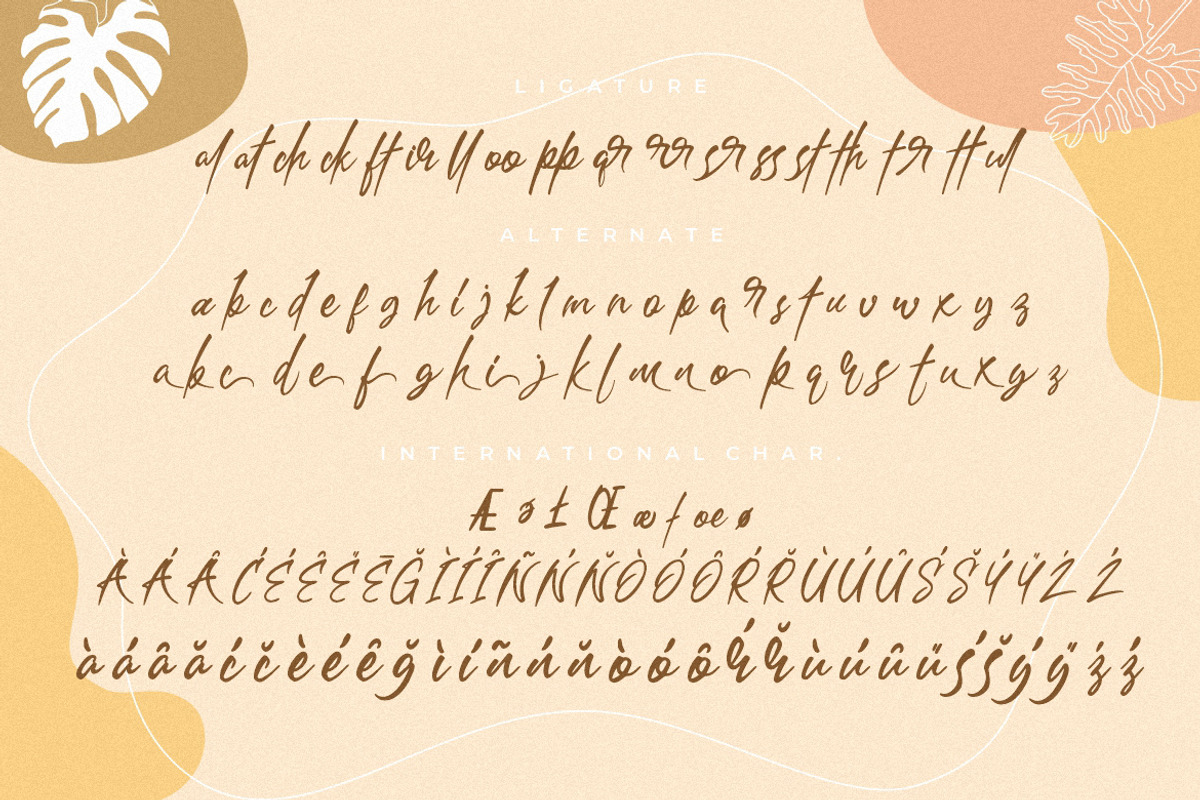 LIGATURE
al at ch ck ft ir ll oo pp qr rr sr ss st th tr tt ul
ALTERNATE
a b c d e f g h i j k l m n o p q r s t u v w x y z
a b c d e f g h i j k l m n o p q r s t u x y z
INTERNATIONAL CHAR.
Æ ł Œ æ ƒ œ ø
À Á Â Ć É Ê Ë Ē Ğ Ì Í Î Ñ Ń Ň Ò Ó Ô Ŕ Ř Ù Ú Û Ś Š Ý Ÿ Ż Ź
à á â ă ć č è é ê ğ ì í ñ ń ň ò ó ô ŕ ř ù ú û ü ś š ý ÿ ż ź